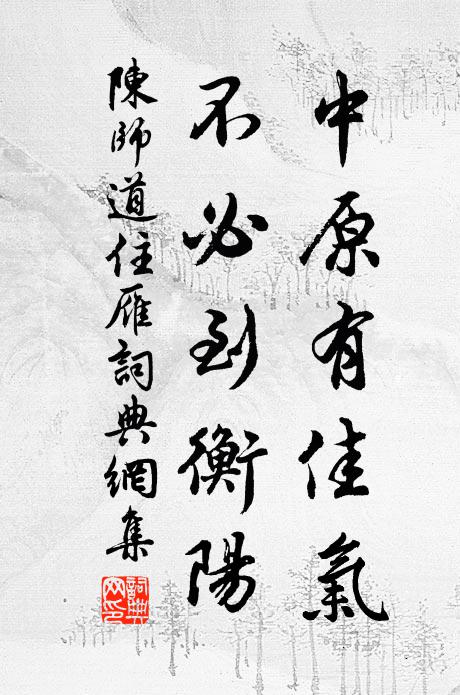 中原有佳氣
不必到衡陽
陳師道住雁詞典網集
詞典网印